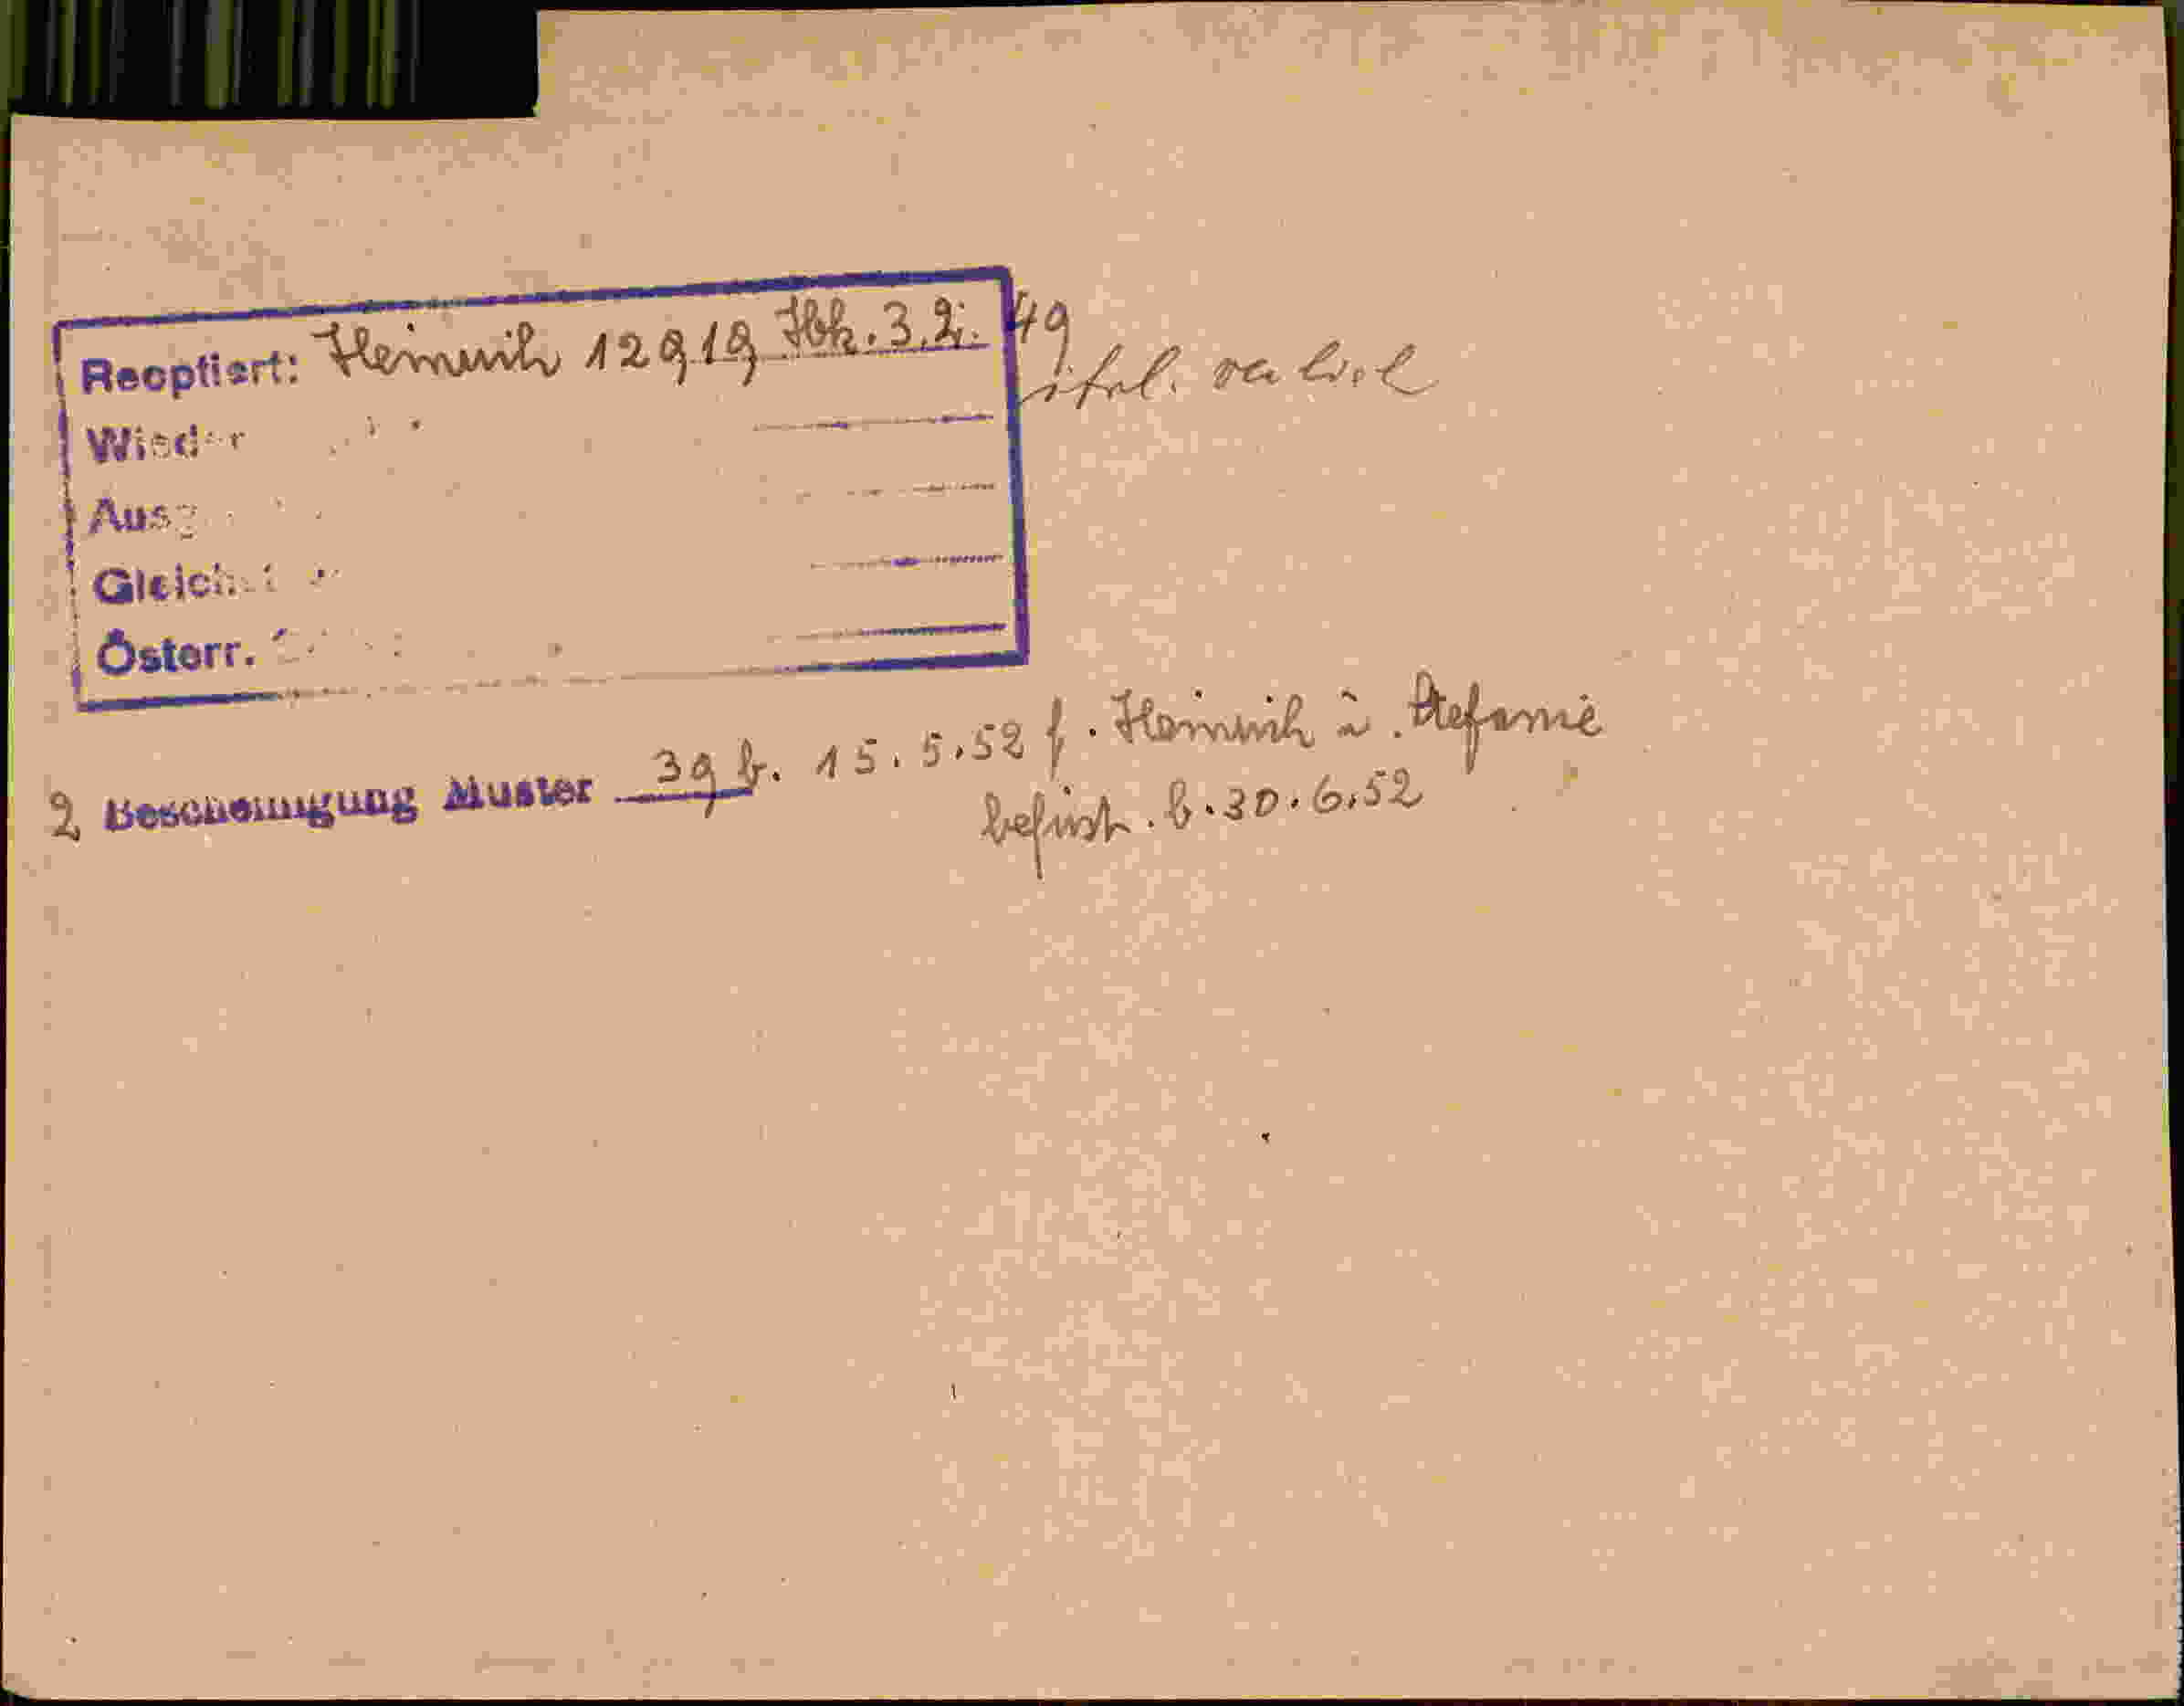 Reoptiert: Heinrich 12919 Ibk. 3.2. 49
ital.
Wieder
Ausg
Gleich
Österr.
2 Bescheinigung Muster 39 b. 15.5.52 f. Heinrich u. Stefanie
befrist. b. 30.6.52